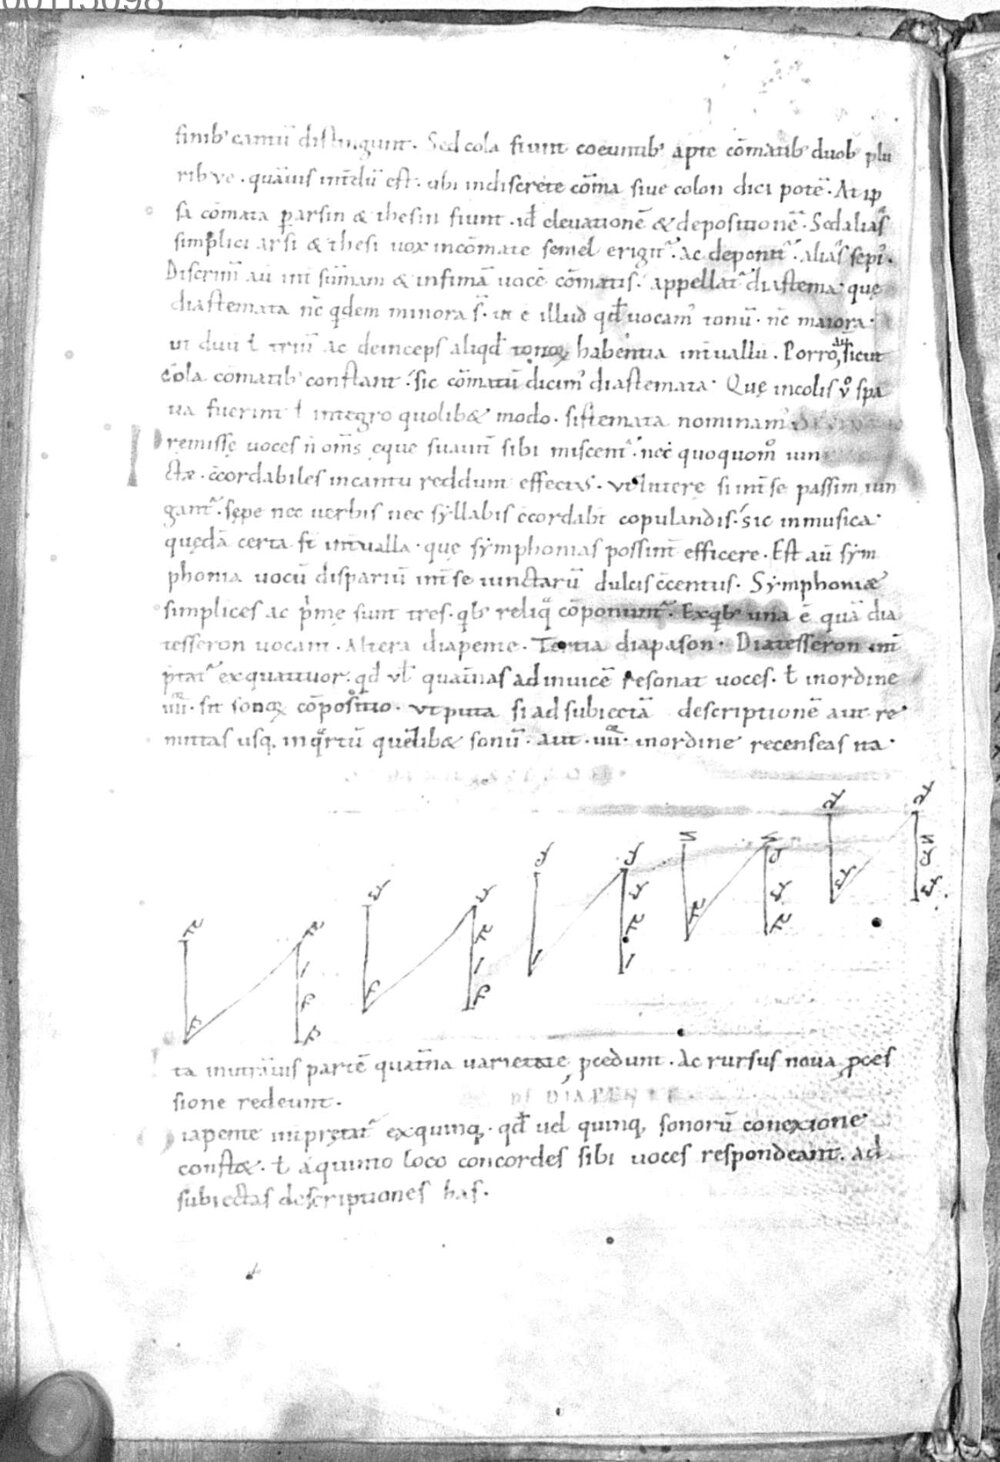 finib' cantuū distingunt. Sed cola fiunt coeuntib' apte cōmatib' duob' plu
rib' ve. quāuis int̄dū est. ubi indiscrete cōma siue colon dici potē. At ip
sa cōmata p arsin & thesin fiunt. id ē leuationē & depositionē. Sed alias
simplici arsi & thesi uox in cōmate semel erigit̄. ac deponit̄. alias sepi'.
Discrim̄ aū int̄ sūmam & infimā uocē cōmatis. appellat̄ diastema. quę
diastemata nc̄ qdem minora s̄. ut ē illud qđ uocam' tonū. nc̄ maiora.
ut duū ł triū ac deinceps aliqđ tonoꝝ habentia int̄uallū. Porro aū sicut
cola comatib' constant. sic cōmatū dicim' diastemata. Quę in colis v̊ spa
tia fuerint ł integro quolib& modo. sistemata nominam'
Premissę uoces n̄ om̄s ęque suauit̄ sibi miscent̄. nec quoquom̊ iun
ctæ. c̄cordabiles in cantu reddunt effectus. Vt litterę si int̄ se passim iun
gant̄. sępe nec uerbis nec syllabis c̄cordabt̄ copulandis. sic in musica
quędā certa st̄ int̄ualla. que symphonias possint efficere. Est aū sym
phonia uocū dispariū int̄ se iunctarū dulcis c̄centus. Symphoniæ
simplices ac p'mę sunt tres. qb' reliq̄ cōponunt̄. Ex qb' una ē quā dia
tesseron uocant. Altera diapente. Tertia diapason. Diatesseron int̄
p̄tat̄ ex quattuor. qđ vł quat̄nas ad inuicē resonat uoces. ł in ordine
iiii. sit sonoꝝ cōpositio. Vt puta si ad subiectā descriptionē aut re
mittas usq; in q̄rtū quēlib& sonū. aut iiii. in ordine recenseas ita
ta in utrāuis partē quat̄na uarietate p̄cedunt. Ac rursus noua p̄ces
sione redeunt.
DE DIAPENTE
iapente int̄p̄tat̄ ex quinq;. qđ uel quinq; sonorū conexione
const&. ł a quinto loco concordes sibi uoces respondeant. ad
subiectas descriptiones has.